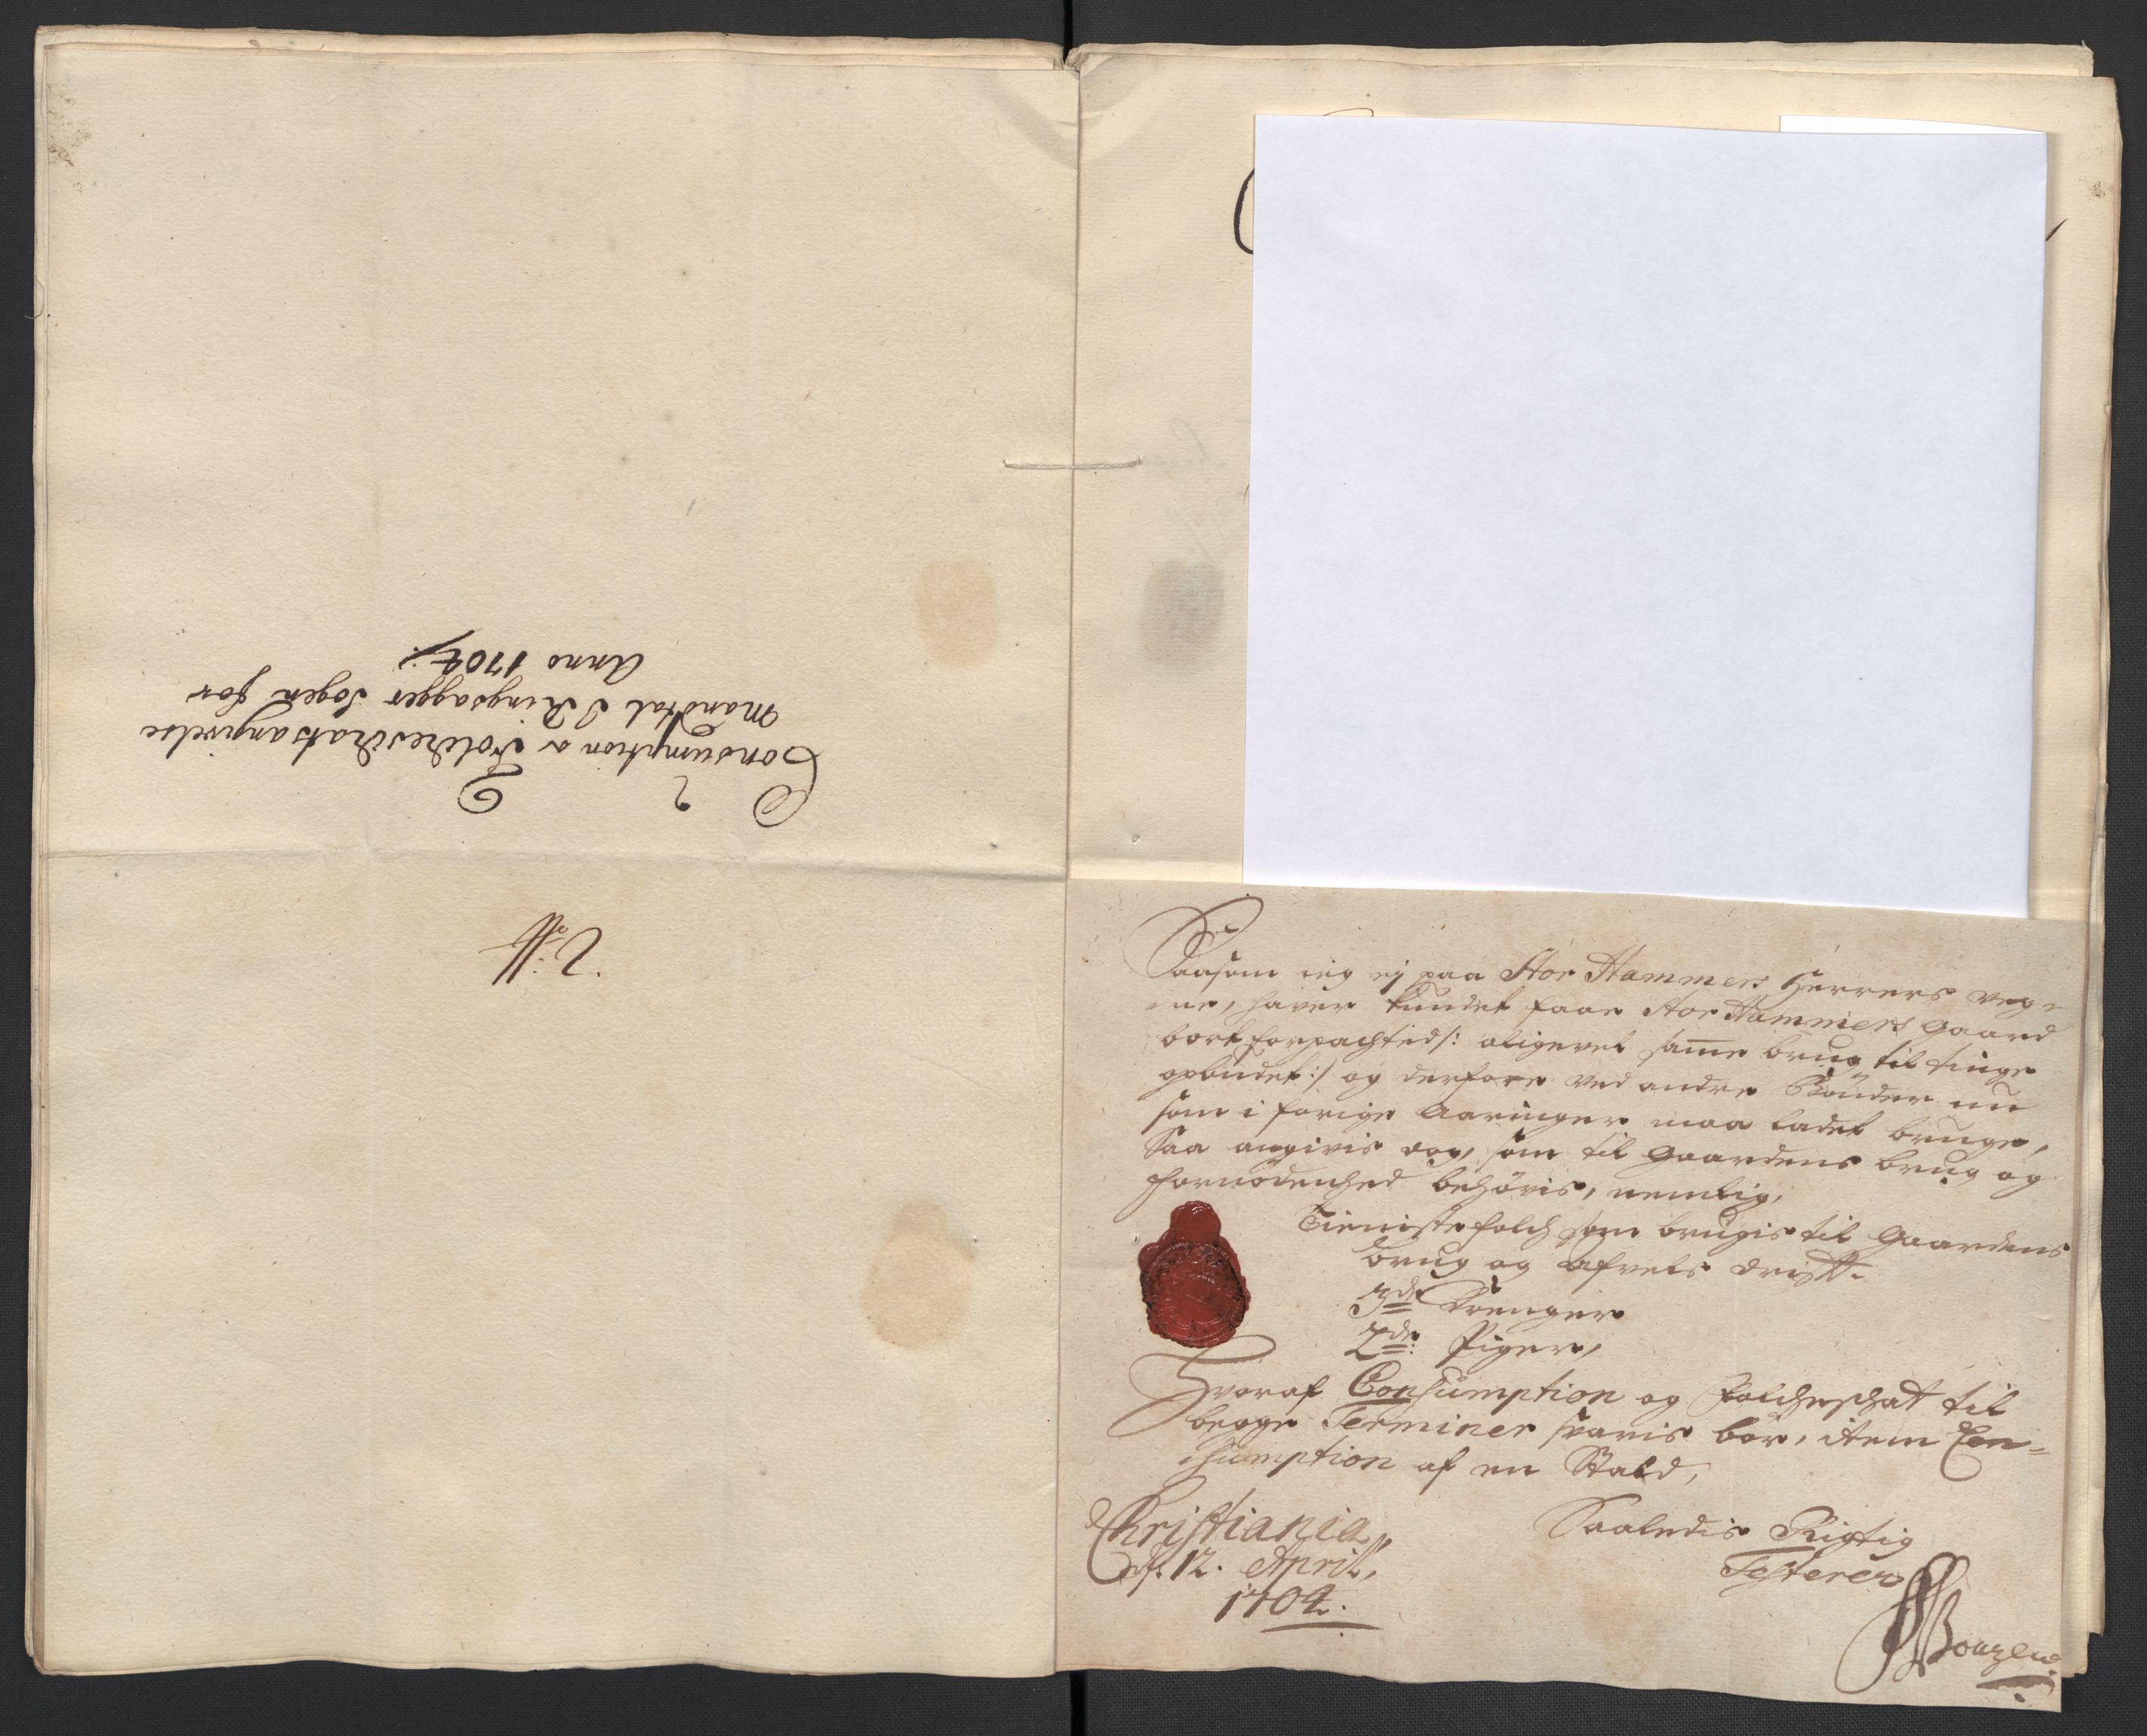 Consumption & Folckeschats angivelse
Mandtal I Ringsagger Sogen for
Anno 1704
Saasom ieg ej paa Stor Hammers Herrers veg=
ne, haver kundet faae Stor Hammers gaard
bortforpachted /: aligevel same brug til tinge
opbudet :/ og derfore ved andre Bönder nu
som i forige Aaringer maa ladet bruge,
Saa angivis dog, som til gaardens brug og
fornödenhed behövis, nemlig,
Tienistefolch som brugis til Gaardens
brug og Afvels drift
3de Drenger
2de: Piger,
Hvoraf Consumption og Folcheschat til
begge Terminer svaris bör, item Con=
sumption af en Stald,
Christiania,
d. 12. April,
1704.
Saaledis Rigtig
Testerer